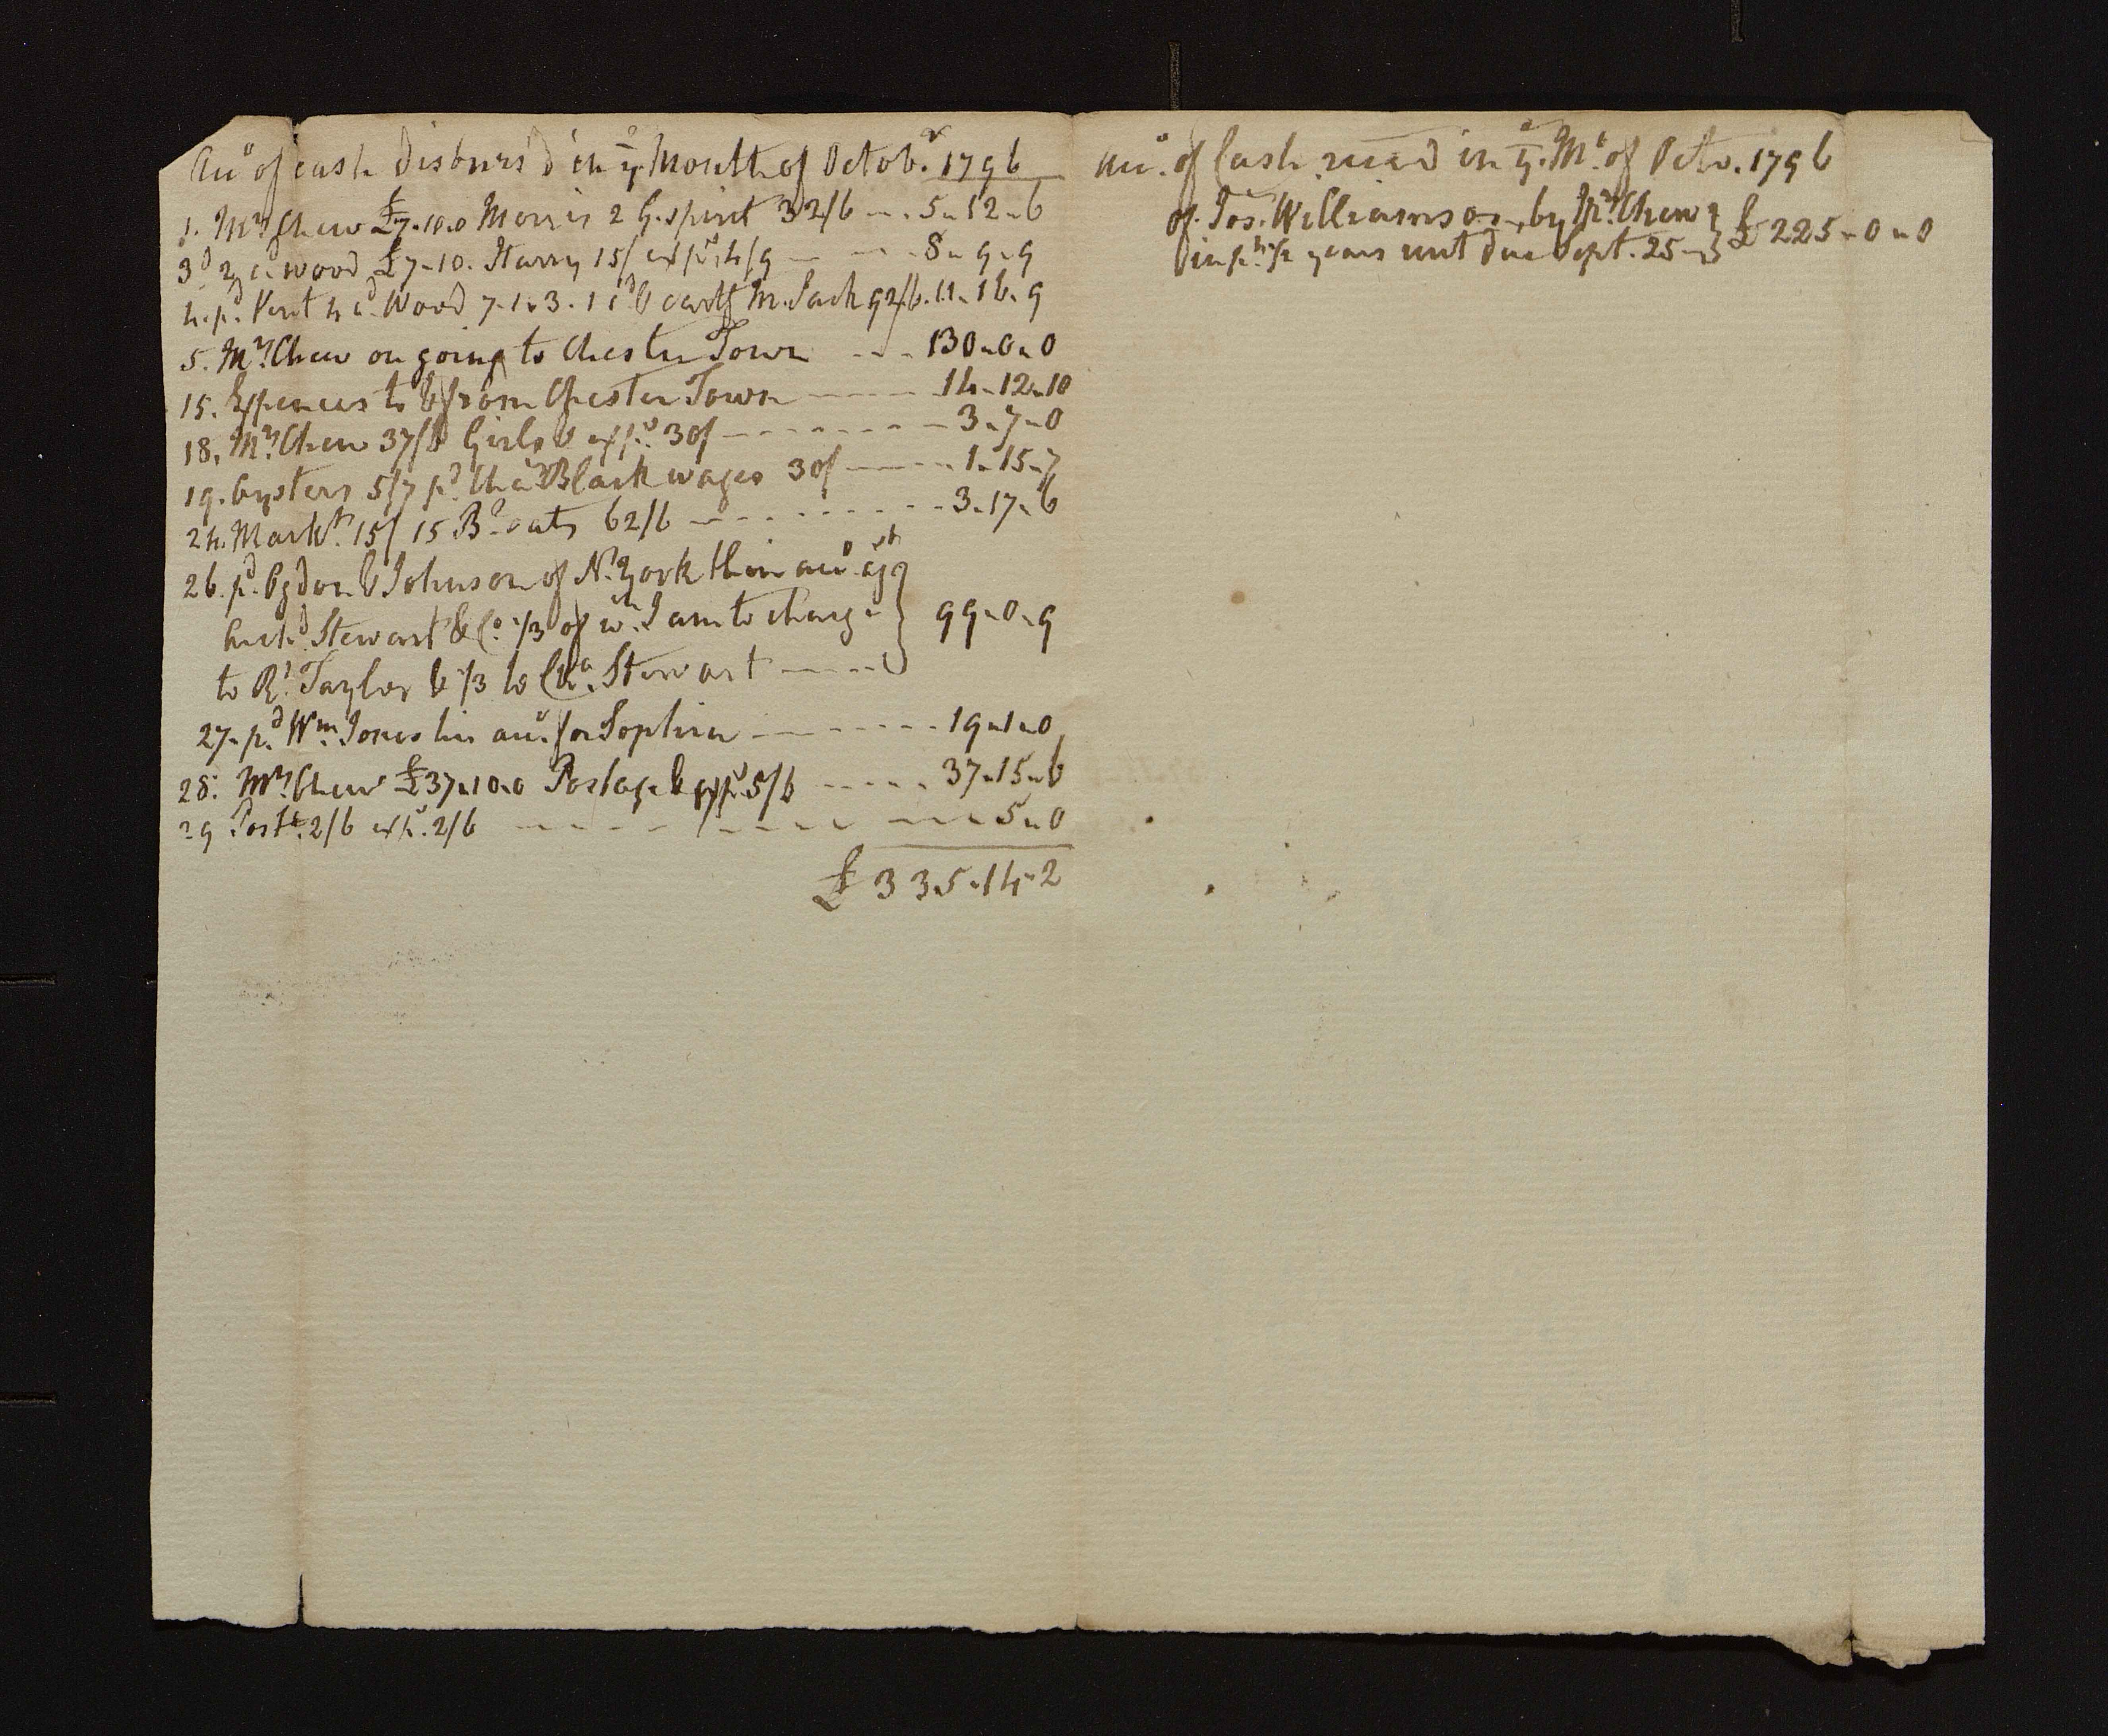 Acc.º of cash Disburs'd in yᵉ Month of Octob.ʳ 1796
1. Mʳˢ Chew £7.10.0 Morris 2 G. spirit 32/6 -- 5-12-6
3ᵈ 2 cᵈ wood £7-10. Harry 15/ expˢ 4/9 -- 8-9-9
4. pᵈ. Vent 4 cᵈ. Wood 7-1-3. 1 cᵈ & cart'g M. Jack 92/6. 11-16-9
5. Mʳˢ Chew on going to Chester Town --- 130-0-0
15. Expences to & from Chester Town ---- 14-12-10
18. Mʳˢ Chew 37/ Girls & expˢ 30/ ------- 3-7-0
19. Oysters 5/7 pᵈ. Chaˢ Black wages 30/ ---- 1-15-7
24. Markᵗ. 15/ 15 Bˢ oats 62/6 --------- 3-17-6
26. pᵈ. Ogdon & Johnson of N. York their accᵒ agˢᵗ
Archᵈ Stewart & Cᵒ. 1/3 of wᶜʰ I am to charge } 99-0-9
to Rᵗ. Taylor & 1/3 to Chᵃ. Stewart -----
27. pᵈ Wᵐ. Jones his accᵒ. for Sophia ------- 19-1-0
28. Mʳˢ Chew £37-10-0 Postage & expˢ. 5/6 ----- 37-15-6
29 Postᵉ. 2/6 expˢ. 2/6 ---- ---- --- 5-0
£335-14-2
Accᵒ. of Cash rec'd in yᵉ. Mᵒ. of Octo. 1796
of Jos. Williamson, by Mʳˢ Chew } £225-0-0
in pᵗ. 1/2 years rent due Sept. 25-